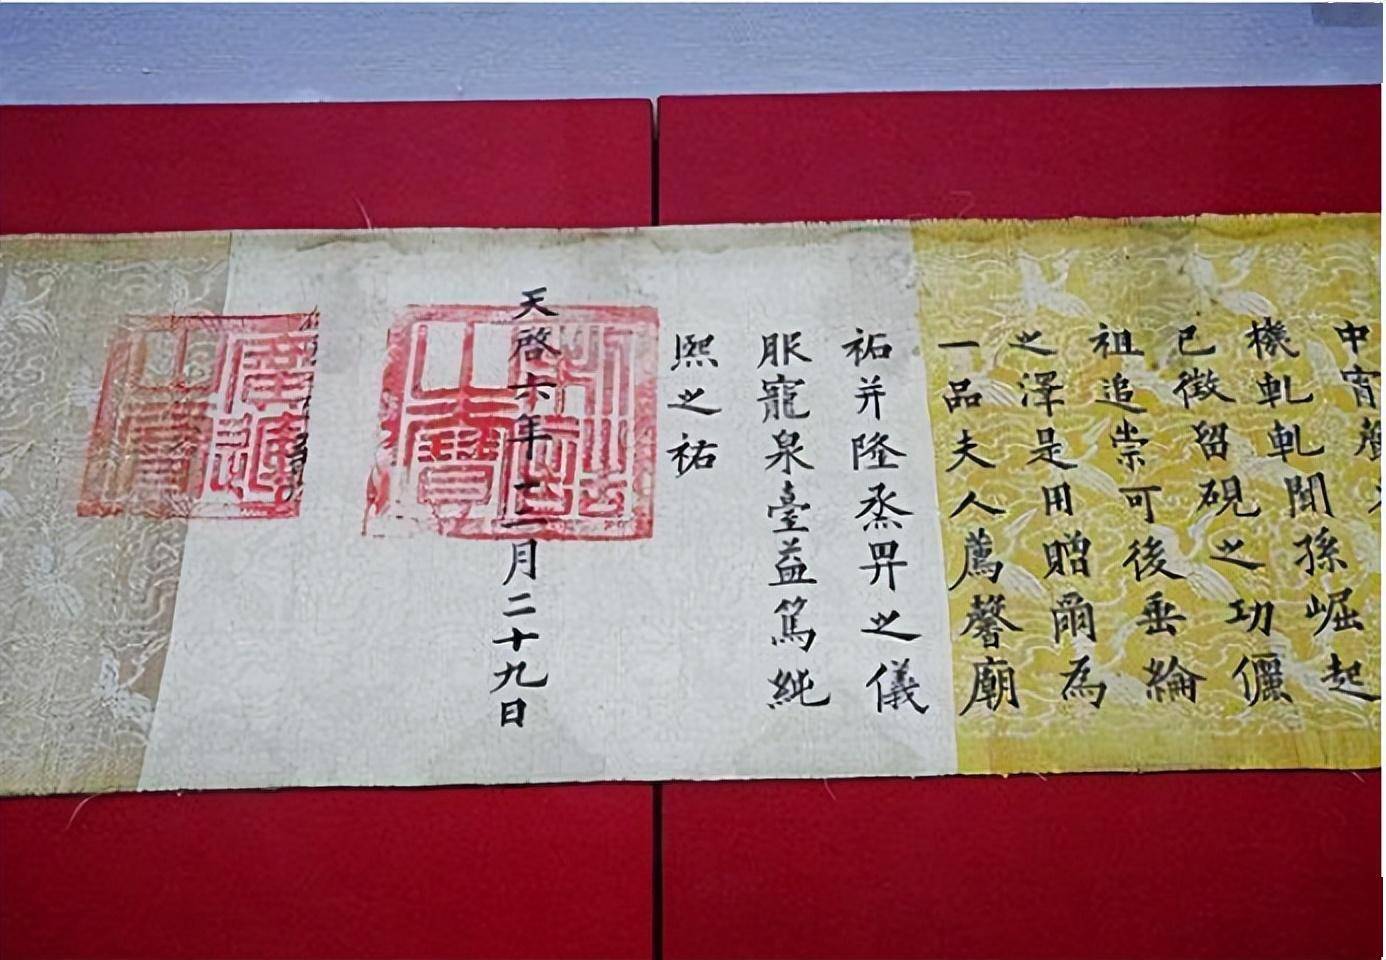 中宵聲
機軋軋聞孫崛起
已徵留硯之功儷
祖追崇可後垂綸
之澤是用贈爾為
一品夫人薦馨廟
祏并隆烝畀之儀
服寵泉臺益篤純
熙之祐
天啓六年十二月二十九日
制誥之寶
廣運之寶